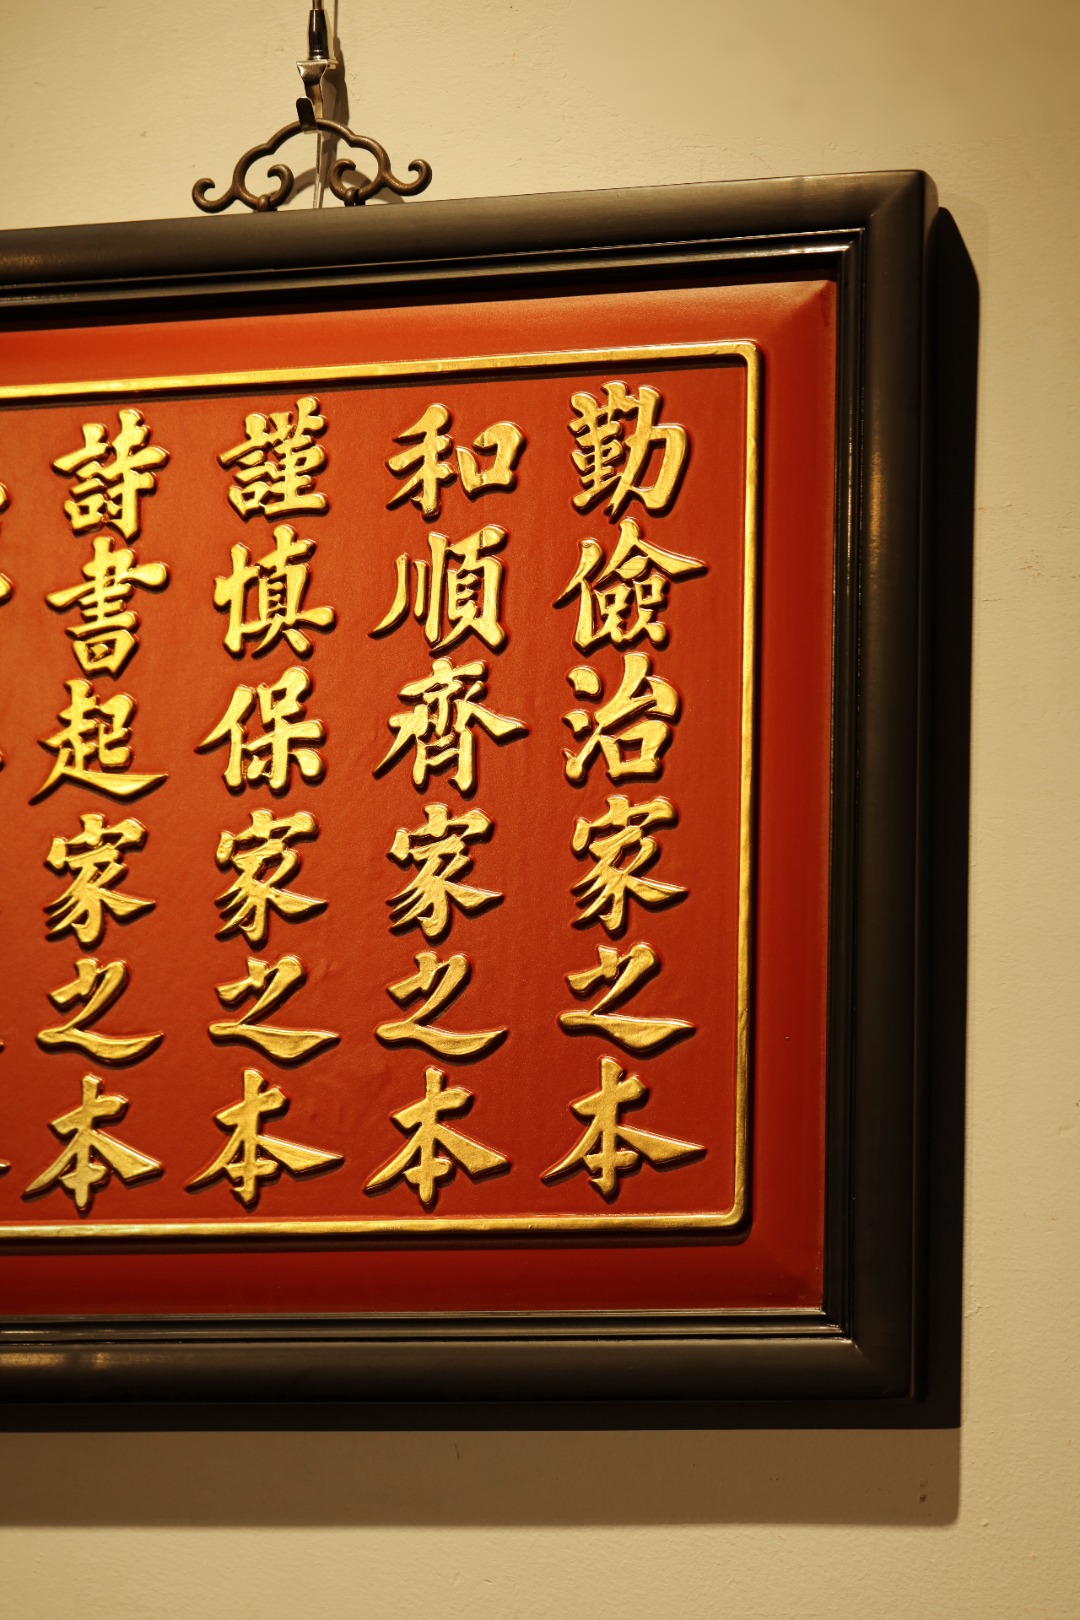 勤儉治家之本
和順齊家之本
謹慎保家之本
詩書起家之本